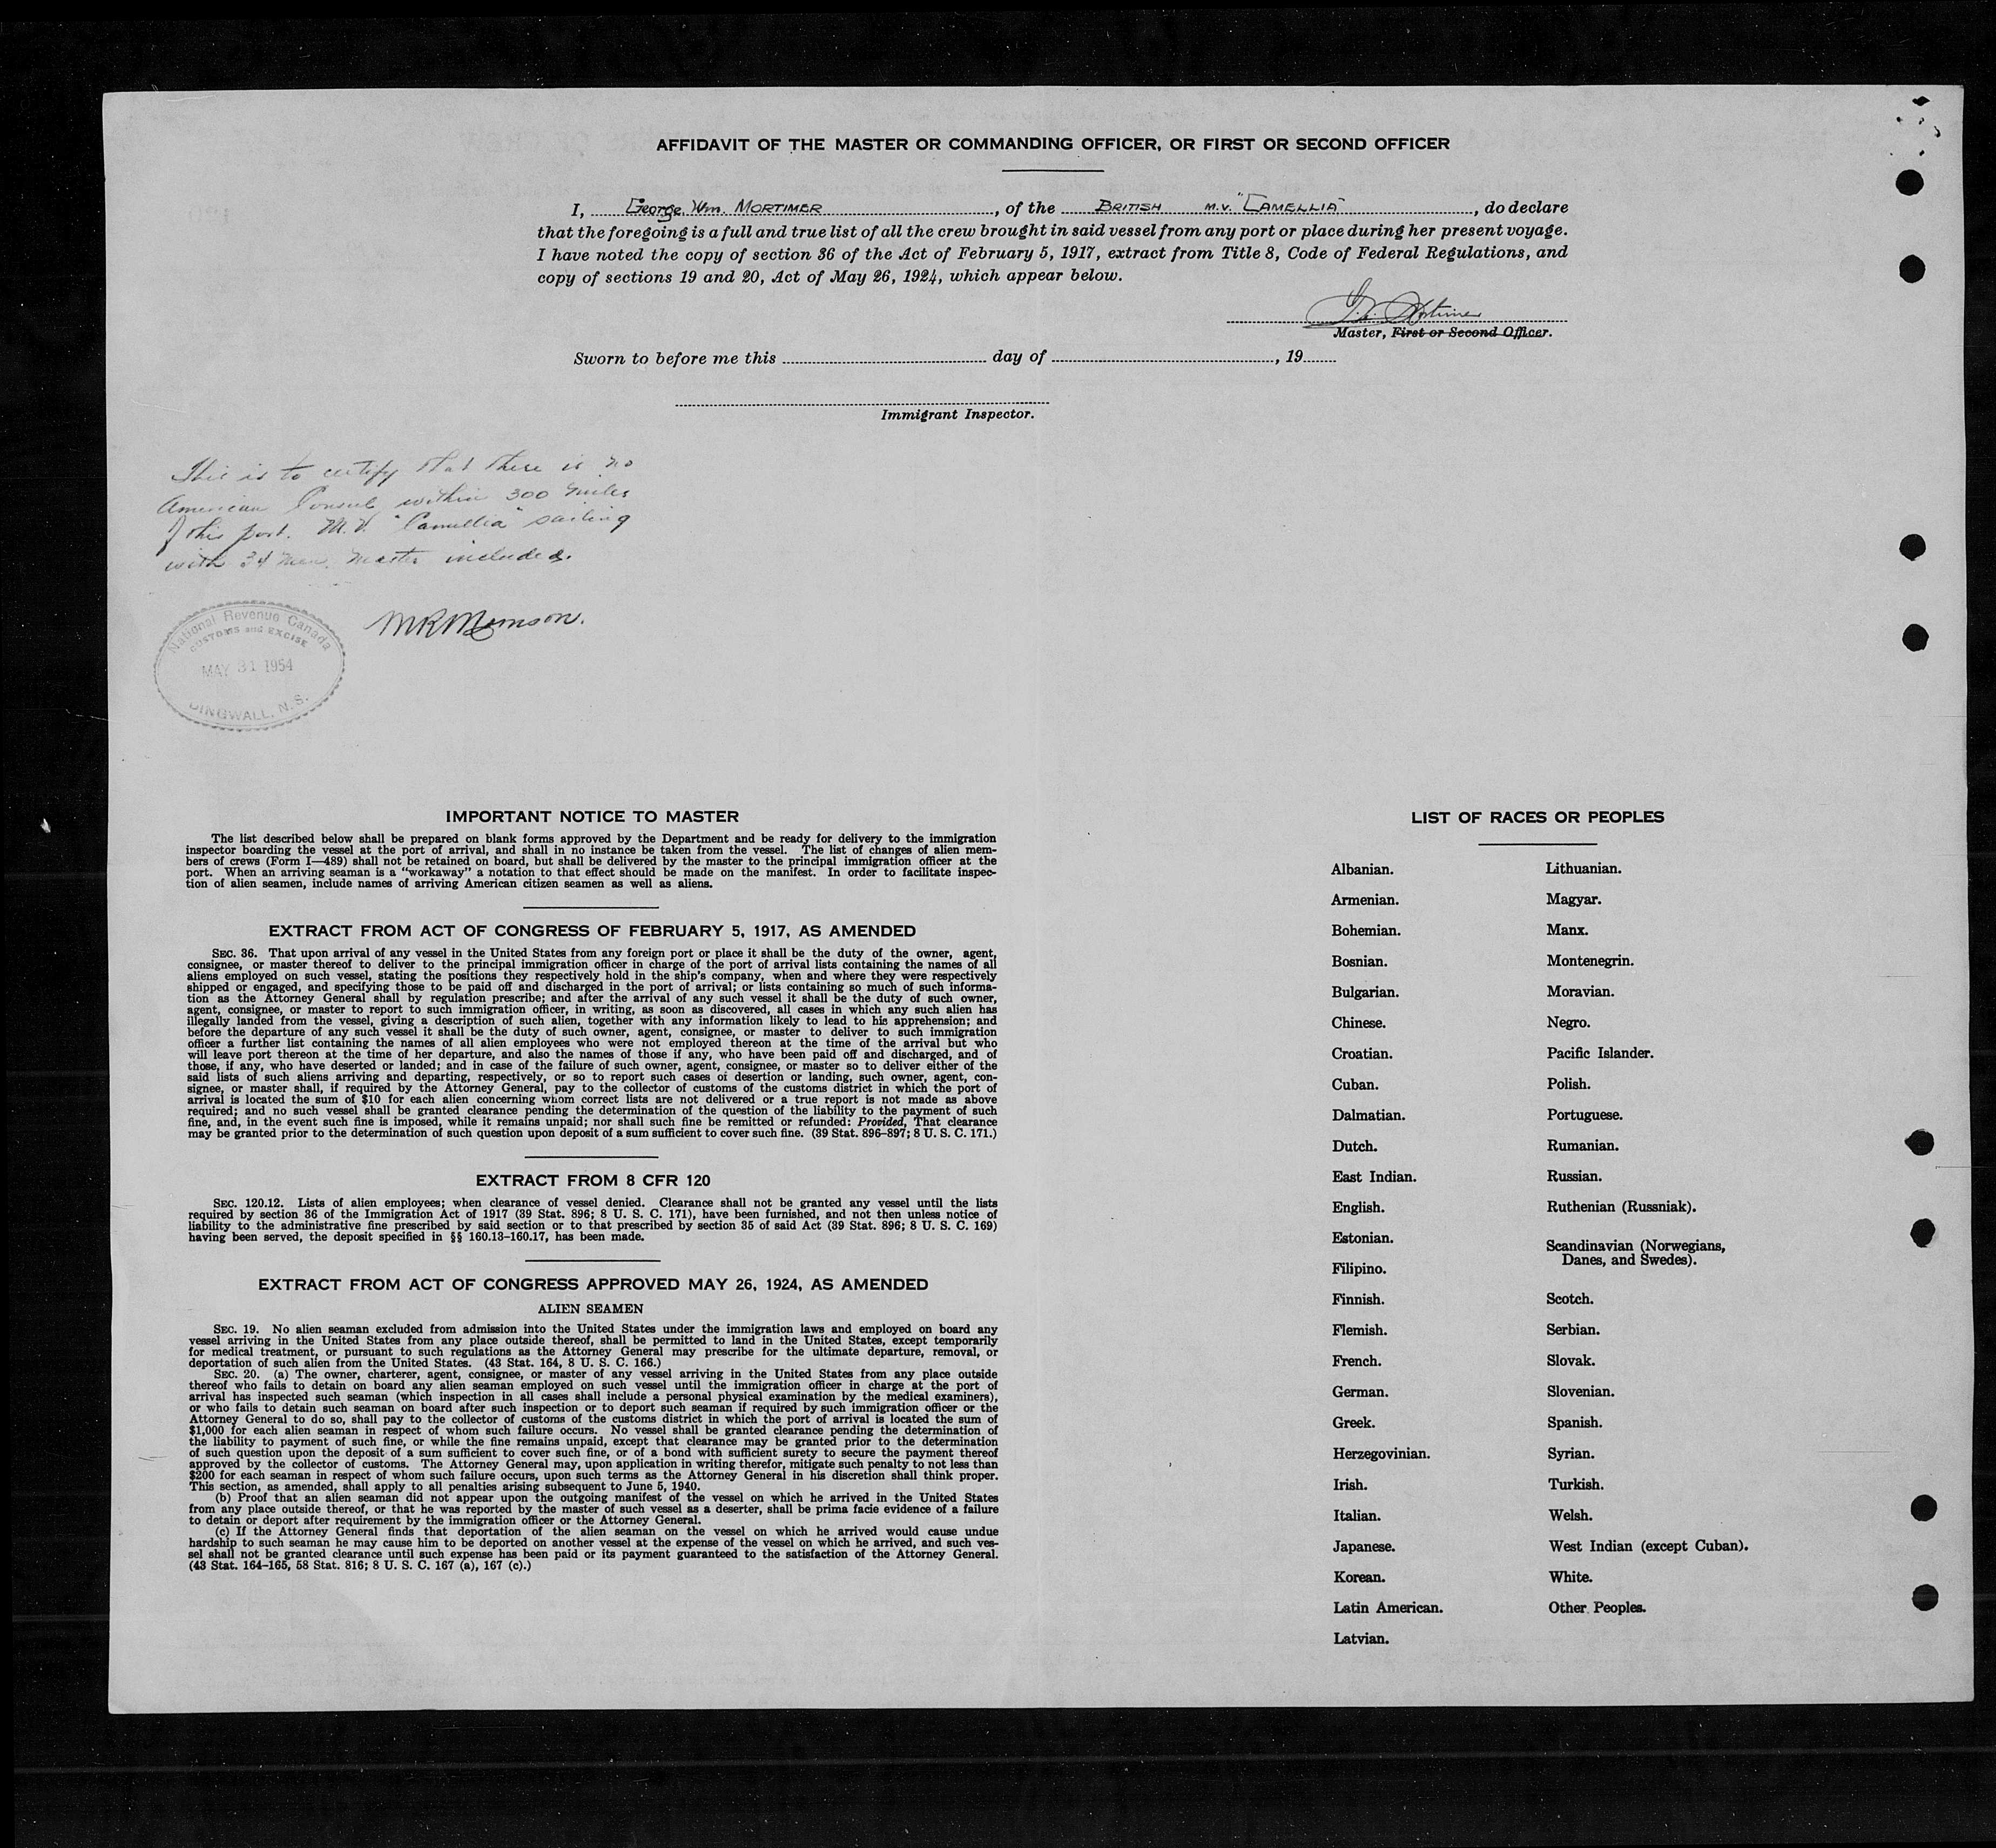 AFFIDAVIT OF THE MASTER OR COMMANDING OFFICER, OR FIRST OR SECOND OFFICER
I, George Wm. MORTIMER, of the BRITISH M.V. "CAMELLIA", do declare
that the foregoing is a full and true list of all the crew brought in said vessel from any port or place during her present voyage.
I have noted the copy of section 36 of the Act of February 5, 1917, extract from Title 8, Code of Federal Regulations, and
copy of sections 19 and 20, Act of May 26, 1924, which appear below.
Mortimer
Master, First or Second Officer.
Sworn to before me this day of , 19
Immigrant Inspector.
This is to certify that there is no
American Consul within 300 miles
of this port. M.V. "Camellia" sailing
with 34 men, master included.
National Revenue Canada
CUSTOMS and EXCISE
MAY 31 1954
DINGWALL, N.S.
IMPORTANT NOTICE TO MASTER
The list described below shall be prepared on blank forms approved by the Department and be ready for delivery to the immigration
inspector boarding the vessel at the port of arrival, and shall in no instance be taken from the vessel. The list of changes of alien mem-
bers of crews (Form I—489) shall not be retained on board, but shall be delivered by the master to the principal immigration officer at the
port. When an arriving seaman is a "workaway" a notation to that effect should be made on the manifest. In order to facilitate inspec-
tion of alien seamen, include names of arriving American citizen seamen as well as aliens.
EXTRACT FROM ACT OF CONGRESS OF FEBRUARY 5, 1917, AS AMENDED
SEC. 36. That upon arrival of any vessel in the United States from any foreign port or place it shall be the duty of the owner, agent,
consignee, or master thereof to deliver to the principal immigration officer in charge of the port of arrival lists containing the names of all
aliens employed on such vessel, stating the positions they respectively hold in the ship's company, when and where they were respectively
shipped or engaged, and specifying those to be paid off and discharged in the port of arrival; or lists containing so much of such informa-
tion as the Attorney General shall by regulation prescribe; and after the arrival of any such vessel it shall be the duty of such owner,
agent, consignee, or master to report to such immigration officer, in writing, as soon as discovered, all cases in which any such alien has
illegally landed from the vessel, giving a description of such alien, together with any information likely to lead to his apprehension; and
before the departure of any such vessel it shall be the duty of such owner, agent, consignee, or master to deliver to such immigration
officer a further list containing the names of all alien employees who were not employed thereon at the time of the arrival but who
will leave port thereon at the time of her departure, and also the names of those if any, who have been paid off and discharged, and of
those, if any, who have deserted or landed; and in case of the failure of such owner, agent, consignee, or master so to deliver either of the
said lists of such aliens arriving and departing, respectively, or so to report such cases of desertion or landing, such owner, agent, con-
signee, or master shall, if required by the Attorney General, pay to the collector of customs of the customs district in which the port of
arrival is located the sum of $10 for each alien concerning whom correct lists are not delivered or a true report is not made as above
required; and no such vessel shall be granted clearance pending the determination of the question of the liability to the payment of such
fine, and, in the event such fine is imposed, while it remains unpaid; nor shall such fine be remitted or refunded: Provided, That clearance
may be granted prior to the determination of such question upon deposit of a sum sufficient to cover such fine. (39 Stat. 896–897; 8 U. S. C. 171.)
EXTRACT FROM 8 CFR 120
SEC. 120.12. Lists of alien employees; when clearance of vessel denied. Clearance shall not be granted any vessel until the lists
required by section 36 of the Immigration Act of 1917 (39 Stat. 896; 8 U. S. C. 171), have been furnished, and not then unless notice of
liability to the administrative fine prescribed by said section or to that prescribed by section 35 of said Act (39 Stat. 896; 8 U. S. C. 169)
having been served, the deposit specified in §§ 160.13–160.17, has been made.
EXTRACT FROM ACT OF CONGRESS APPROVED MAY 26, 1924, AS AMENDED
ALIEN SEAMEN
SEC. 19. No alien seaman excluded from admission into the United States under the immigration laws and employed on board any
vessel arriving in the United States from any place outside thereof, shall be permitted to land in the United States, except temporarily
for medical treatment, or pursuant to such regulations as the Attorney General may prescribe for the ultimate departure, removal, or
deportation of such alien from the United States. (43 Stat. 164, 8 U. S. C. 166.)
SEC. 20. (a) The owner, charterer, agent, consignee, or master of any vessel arriving in the United States from any place outside
thereof who fails to detain on board any alien seaman employed on such vessel until the immigration officer in charge at the port of
arrival has inspected such seaman (which inspection in all cases shall include a personal physical examination by the medical examiners),
or who fails to detain such seaman on board after such inspection or to deport such seaman if required by such immigration officer or the
Attorney General to do so, shall pay to the collector of customs of the customs district in which the port of arrival is located the sum of
$1,000 for each alien seaman in respect of whom such failure occurs. No vessel shall be granted clearance pending the determination of
the liability to payment of such fine, or while the fine remains unpaid, except that clearance may be granted prior to the determination
of such question upon the deposit of a sum sufficient to cover such fine, or of a bond with sufficient surety to secure the payment thereof
approved by the collector of customs. The Attorney General may, upon application in writing therefor, mitigate such penalty to not less than
$200 for each seaman in respect of whom such failure occurs, upon such terms as the Attorney General in his discretion shall think proper.
This section, as amended, shall apply to all penalties arising subsequent to June 5, 1940.
(b) Proof that an alien seaman did not appear upon the outgoing manifest of the vessel on which he arrived in the United States
from any place outside thereof, or that he was reported by the master of such vessel as a deserter, shall be prima facie evidence of a failure
to detain or deport after requirement by the immigration officer or the Attorney General.
(c) If the Attorney General finds that deportation of the alien seaman on the vessel on which he arrived would cause undue
hardship to such seaman he may cause him to be deported on another vessel at the expense of the vessel on which he arrived, and such ves-
sel shall not be granted clearance until such expense has been paid or its payment guaranteed to the satisfaction of the Attorney General.
(43 Stat. 164–165, 58 Stat. 816; 8 U. S. C. 167 (a), 167 (c).)
LIST OF RACES OR PEOPLES
Albanian.
Armenian.
Bohemian.
Bosnian.
Bulgarian.
Chinese.
Croatian.
Cuban.
Dalmatian.
Dutch.
East Indian.
English.
Estonian.
Filipino.
Finnish.
Flemish.
French.
German.
Greek.
Herzegovinian.
Irish.
Italian.
Japanese.
Korean.
Latin American.
Latvian.
Lithuanian.
Magyar.
Manx.
Montenegrin.
Moravian.
Negro.
Pacific Islander.
Polish.
Portuguese.
Rumanian.
Russian.
Ruthenian (Russniak).
Scandinavian (Norwegians,
Danes, and Swedes).
Scotch.
Serbian.
Slovak.
Slovenian.
Spanish.
Syrian.
Turkish.
Welsh.
West Indian (except Cuban).
White.
Other Peoples.